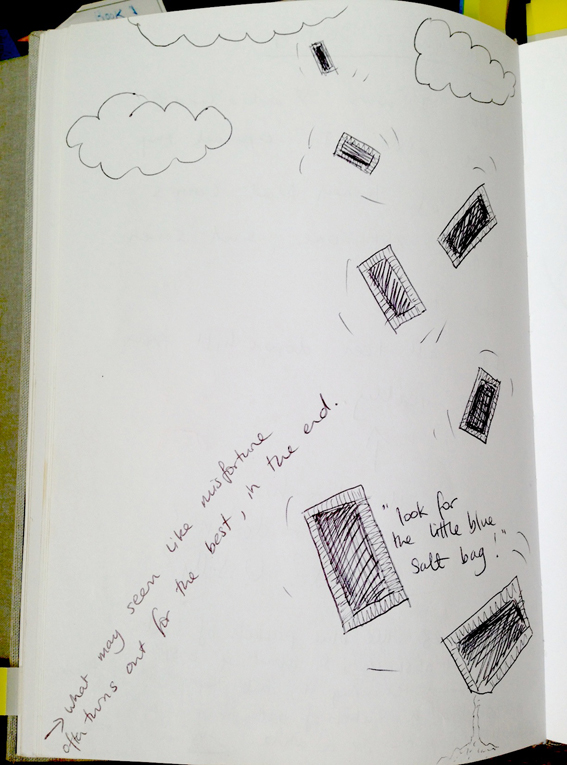 "look for
the little blue
salt bag!"
→ what may seem like misfortune
often turns out for the best, in the end.